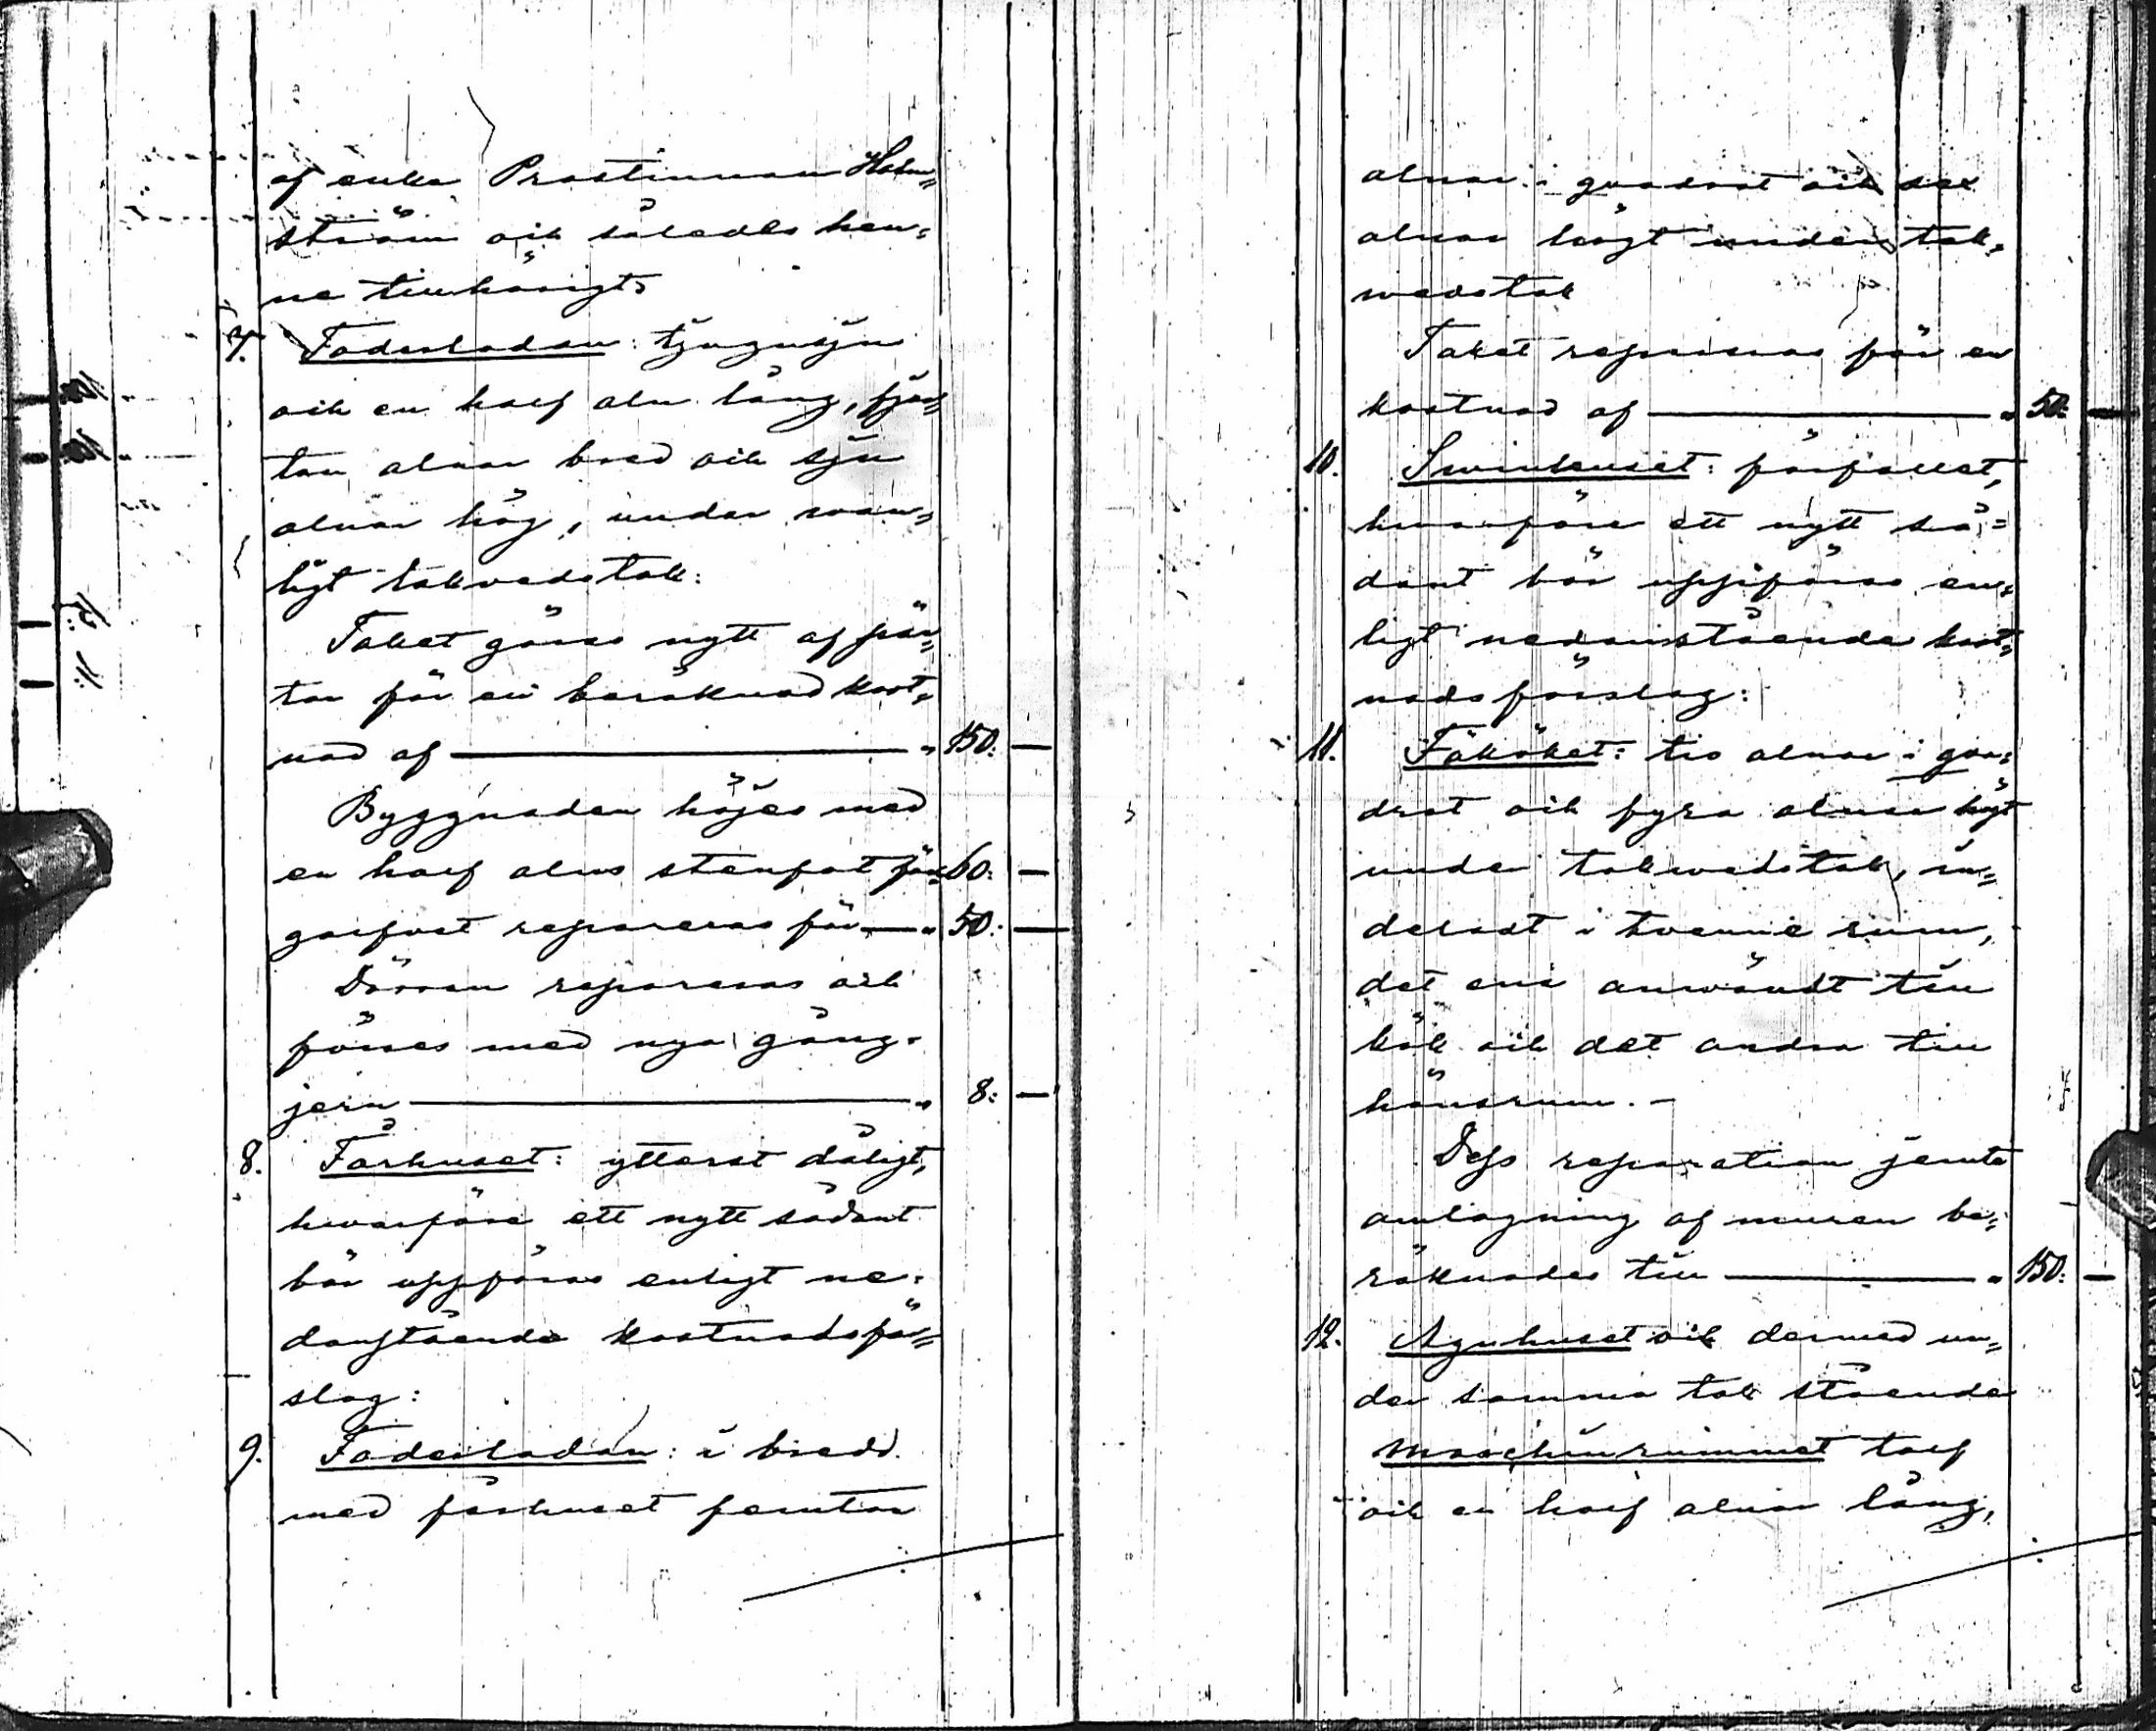 af enke Prostinnan Holm=
ström och således hen=
ne tillhörigt
7. Foderladan: tjugusju
och en half aln lång, fjor=
ton alnar bred och sju
alnar hög, under van=
ligt takvedstak:
Taket göres nytt af pär=
tor för en beräknad kost=
nad af — " 150. —
Byggnaden höjes med
en half alns stenfot för " 60. —
golfvet repareras för — " 50. —
Dörren repareras och
förses med nya gång=
jern — " 8: —
8. Fårhuset: ytterst dåligt,
hvarföre ett nytt sådant
bör uppföras enligt ne=
danstående kostnadsför=
slag:
9. Foderladan: i bredd
med fårhuset femton
alnar i quadrat och sex
alnar högt under tak=
wedstak
Taket repareras för en
kostnad af — " 50: —
10. Swinhuset: förfallet,
hwarföre ett nytt så=
dant bör uppföras en=
ligt nedanstående kost=
nadsförslag:
11. Fäköket: tio alnar i qua=
drat och fyra alnar högt
under takwedstak, in=
deladt i tvenne rum,
det ena anwändt till
kök och det andra till
hönsrum. —
Dess reparation jemte
omlagning af muren be=
räknades till — " 150: —
12. Agnhuset och dermed un=
der samma tak stående
maschinrummet tolf
och en half alnar lång,